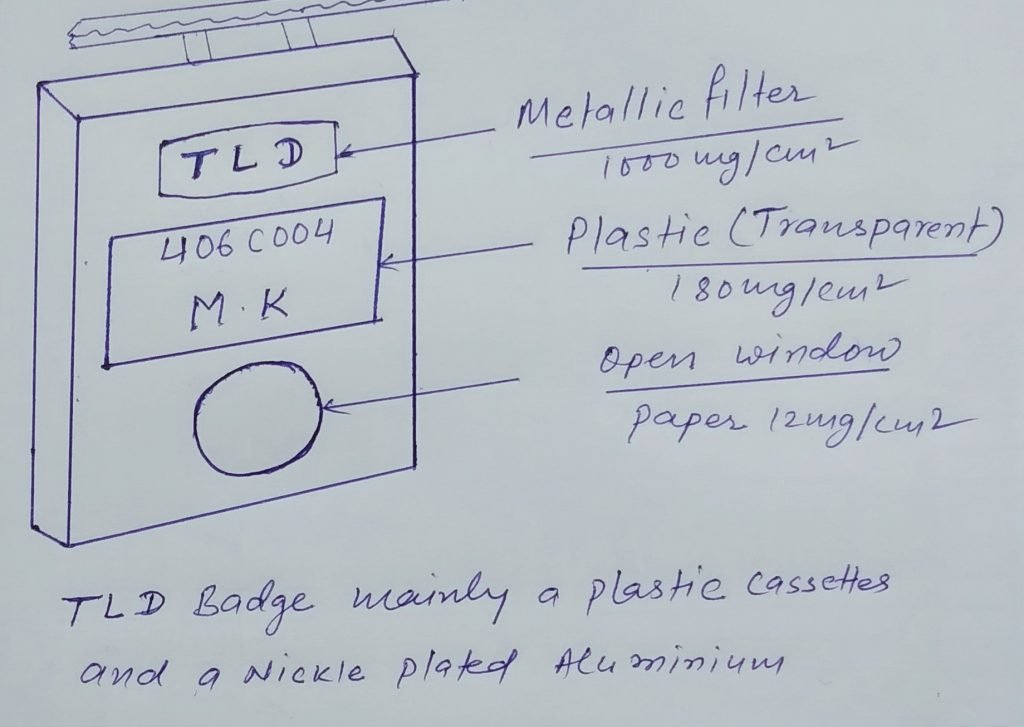 TLD
406C004
M.K
Metallic filter
1000 mg/cm²
Plastic (Transparent)
180mg/cm²
open window
paper 12mg/cm2
TLD Badge mainly a plastic cassettes
and a Nickle plated Aluminium